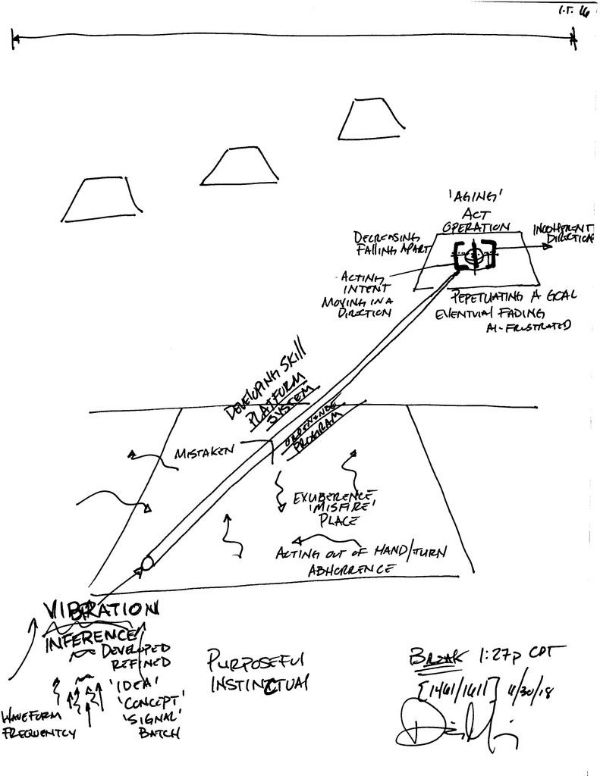 1.5.16
'AGING'
ACT
OPERATION
DECREASING
FALLING APART
INCOHERENT
DIRECTION
ACTING
INTENT
MOVING IN A
DIRECTION
PEPETUATING A GOAL
EVENTUAL FADING
AI-FRUSTRATED
DEVELOPING SKILL
PLATFORM
SYSTEM
PROGRAM
MISTAKEN
EXUBERENCE
'MISFIRE'
PLACE
ACTING OUT OF HAND/TURN
ABHORRENCE
VIBRATION
INFERENCE
DEVELOPED
REFINED
'IDEA'
'CONCEPT'
'SIGNAL'
BATCH
WAVEFORM
FREQUENCY
PURPOSEFUL
INSTINCTUAL
BREAK 1:27P CDT
[1461/1611] 11/30/18